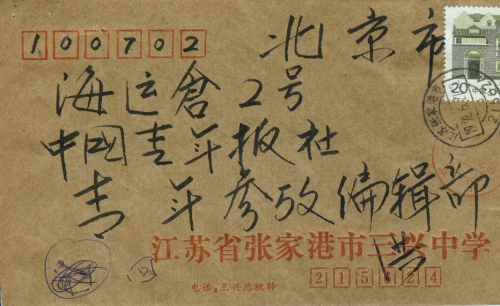 100702
北京市
海运倉2号
中國青年报社
青年参攷编辑部
江苏省张家港市三兴中学
电话:三兴总机转
215424
20